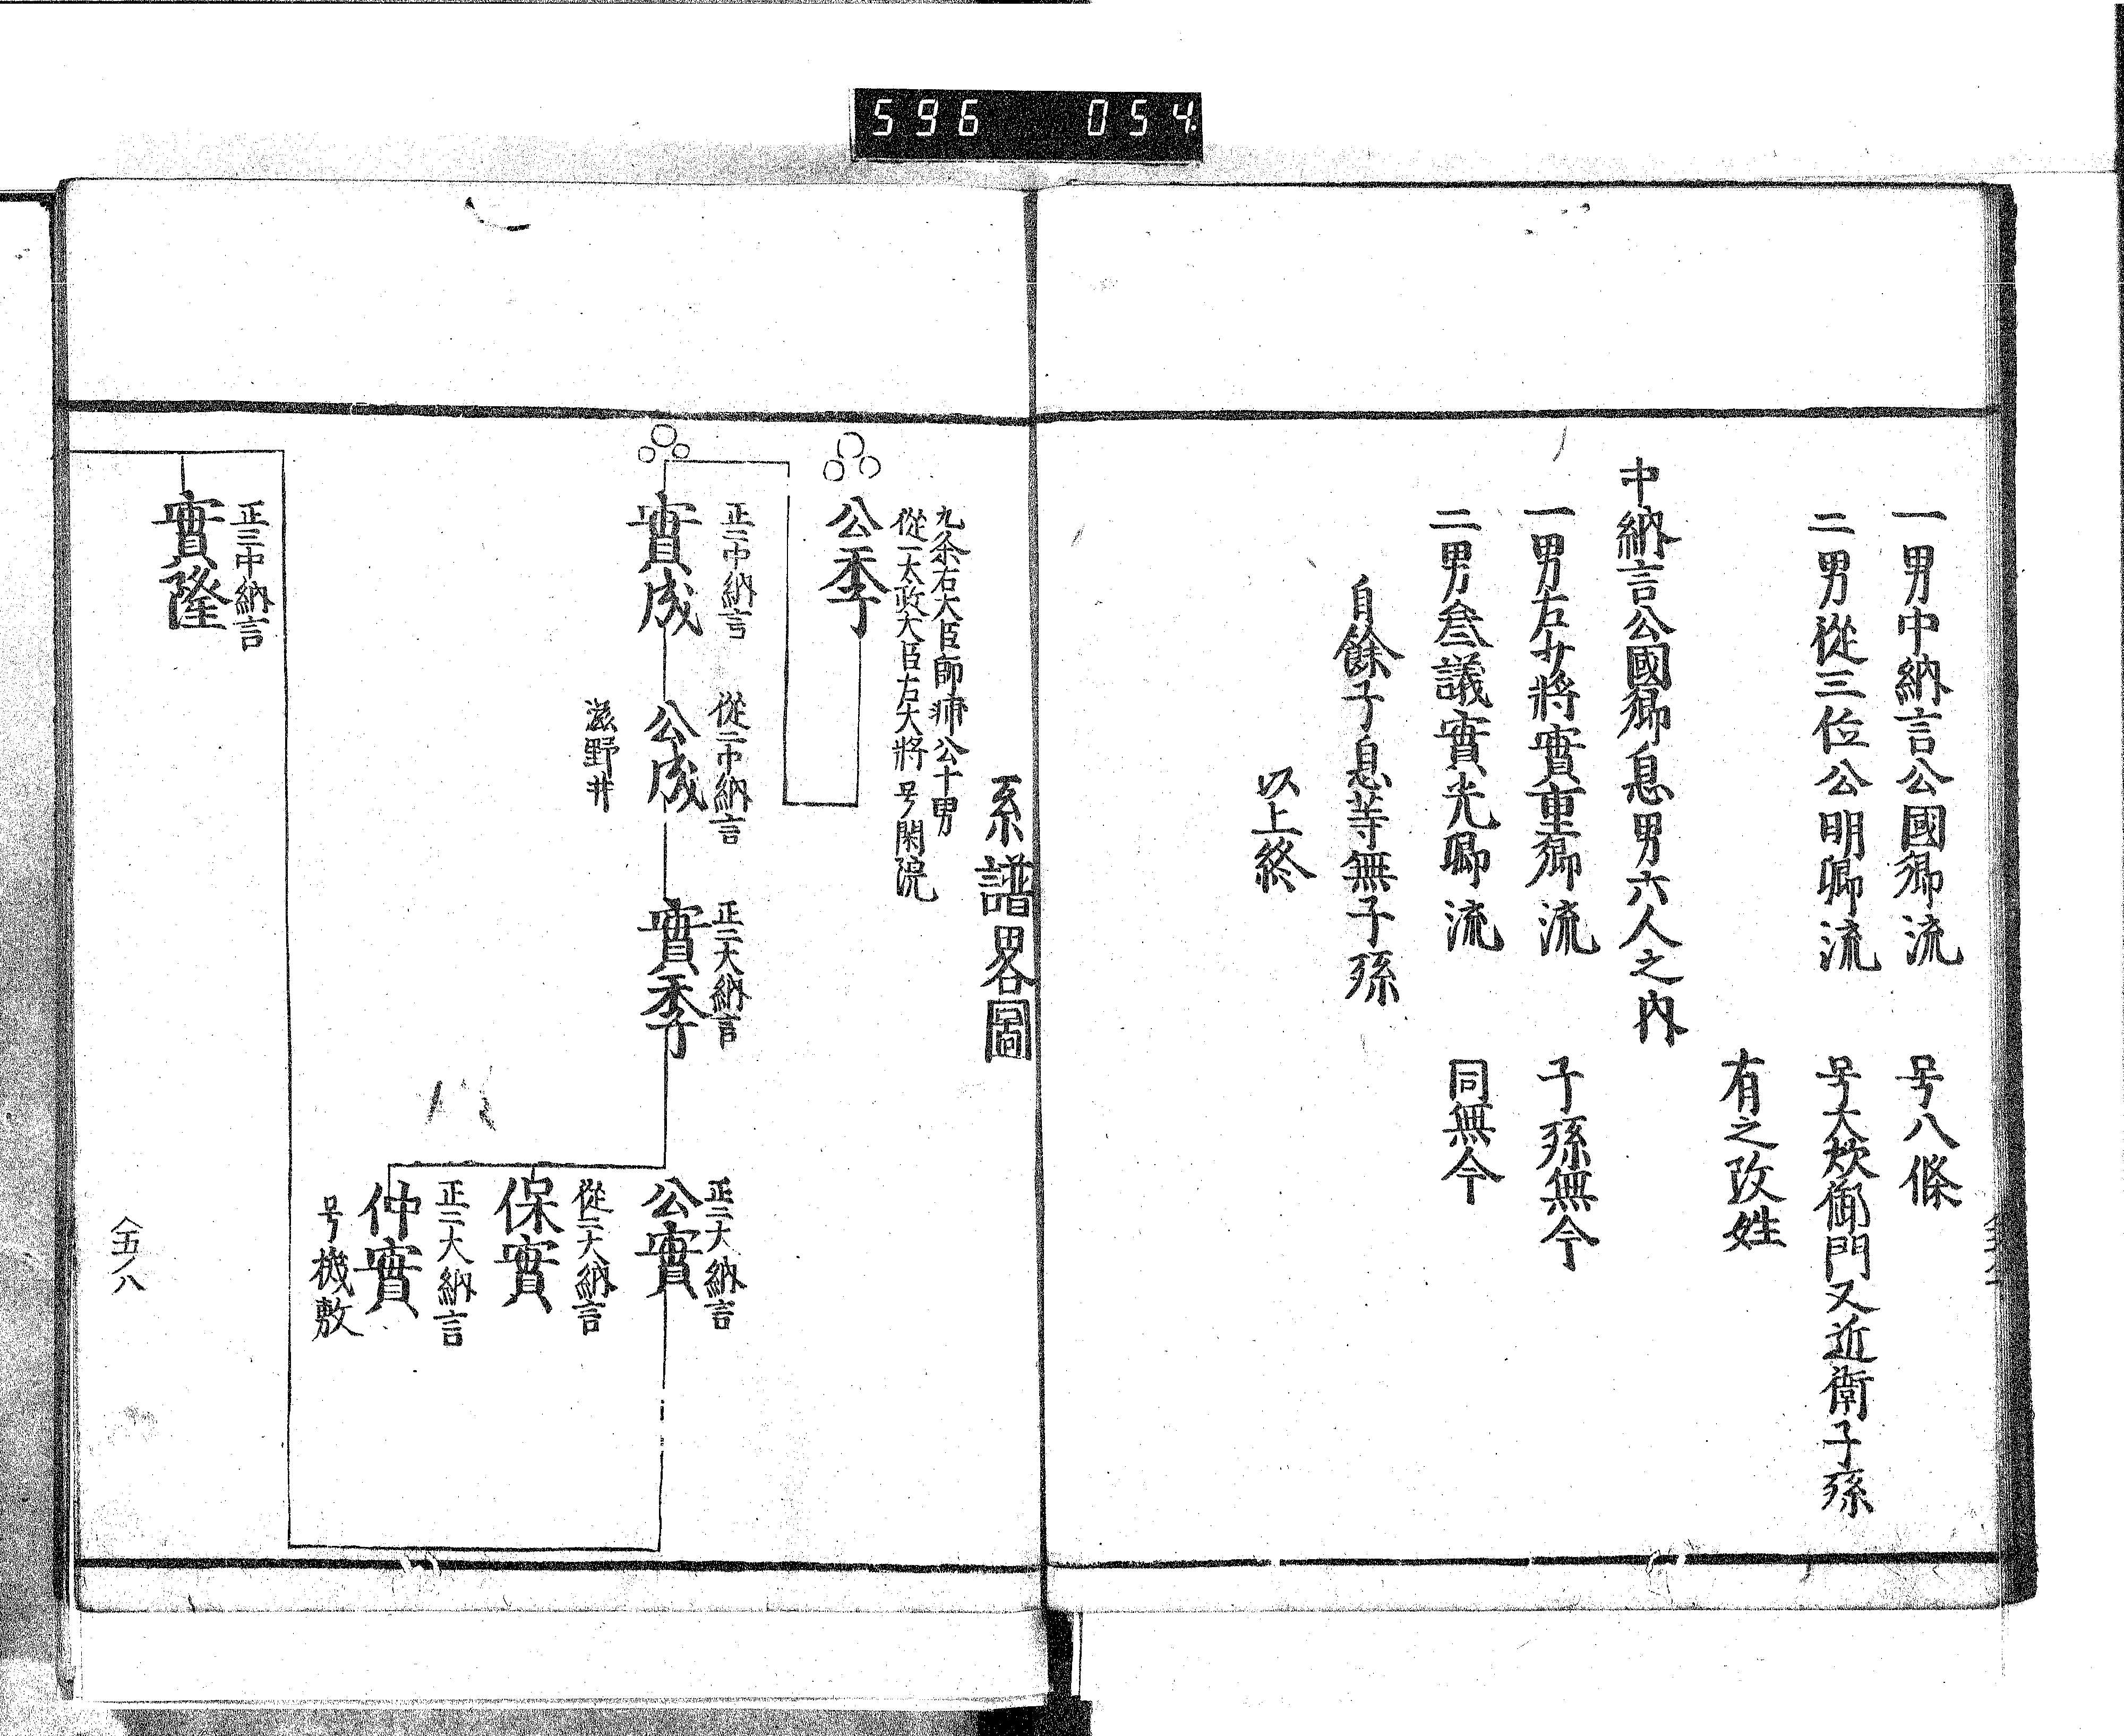 596 054
一男中納言公國卿流 号八條
二男從三位公明卿流 号大炊御門又近衛子孫
有之改姓
中納言公國卿息男六人之内
一男右少將實重卿流 子孫無今
二男叁議實光卿流 同無今
自餘子息等無子孫
以上終
系譜畧圖
九条右大臣師輔公十男
從一太政大臣右大將号閑院
公季
正二中納言
實成
從二中納言
公成
滋野井
正二大納言
實季
正二大納言
公實
從二大納言
保實
正二大納言
仲實
号機敷
正三中納言
實隆
五ノ八